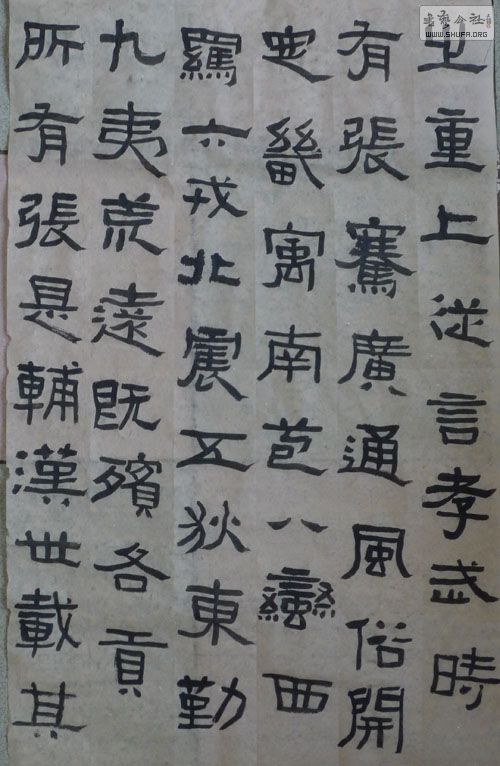 之重上從言孝武時
有張騫廣通風俗開
定畿寓南苞八蠻西
羈六戎北震五狄東勤
九夷荒遠既殯各貢
所有張是輔漢世載其
书艺公社
WWW.SHUFA.ORG